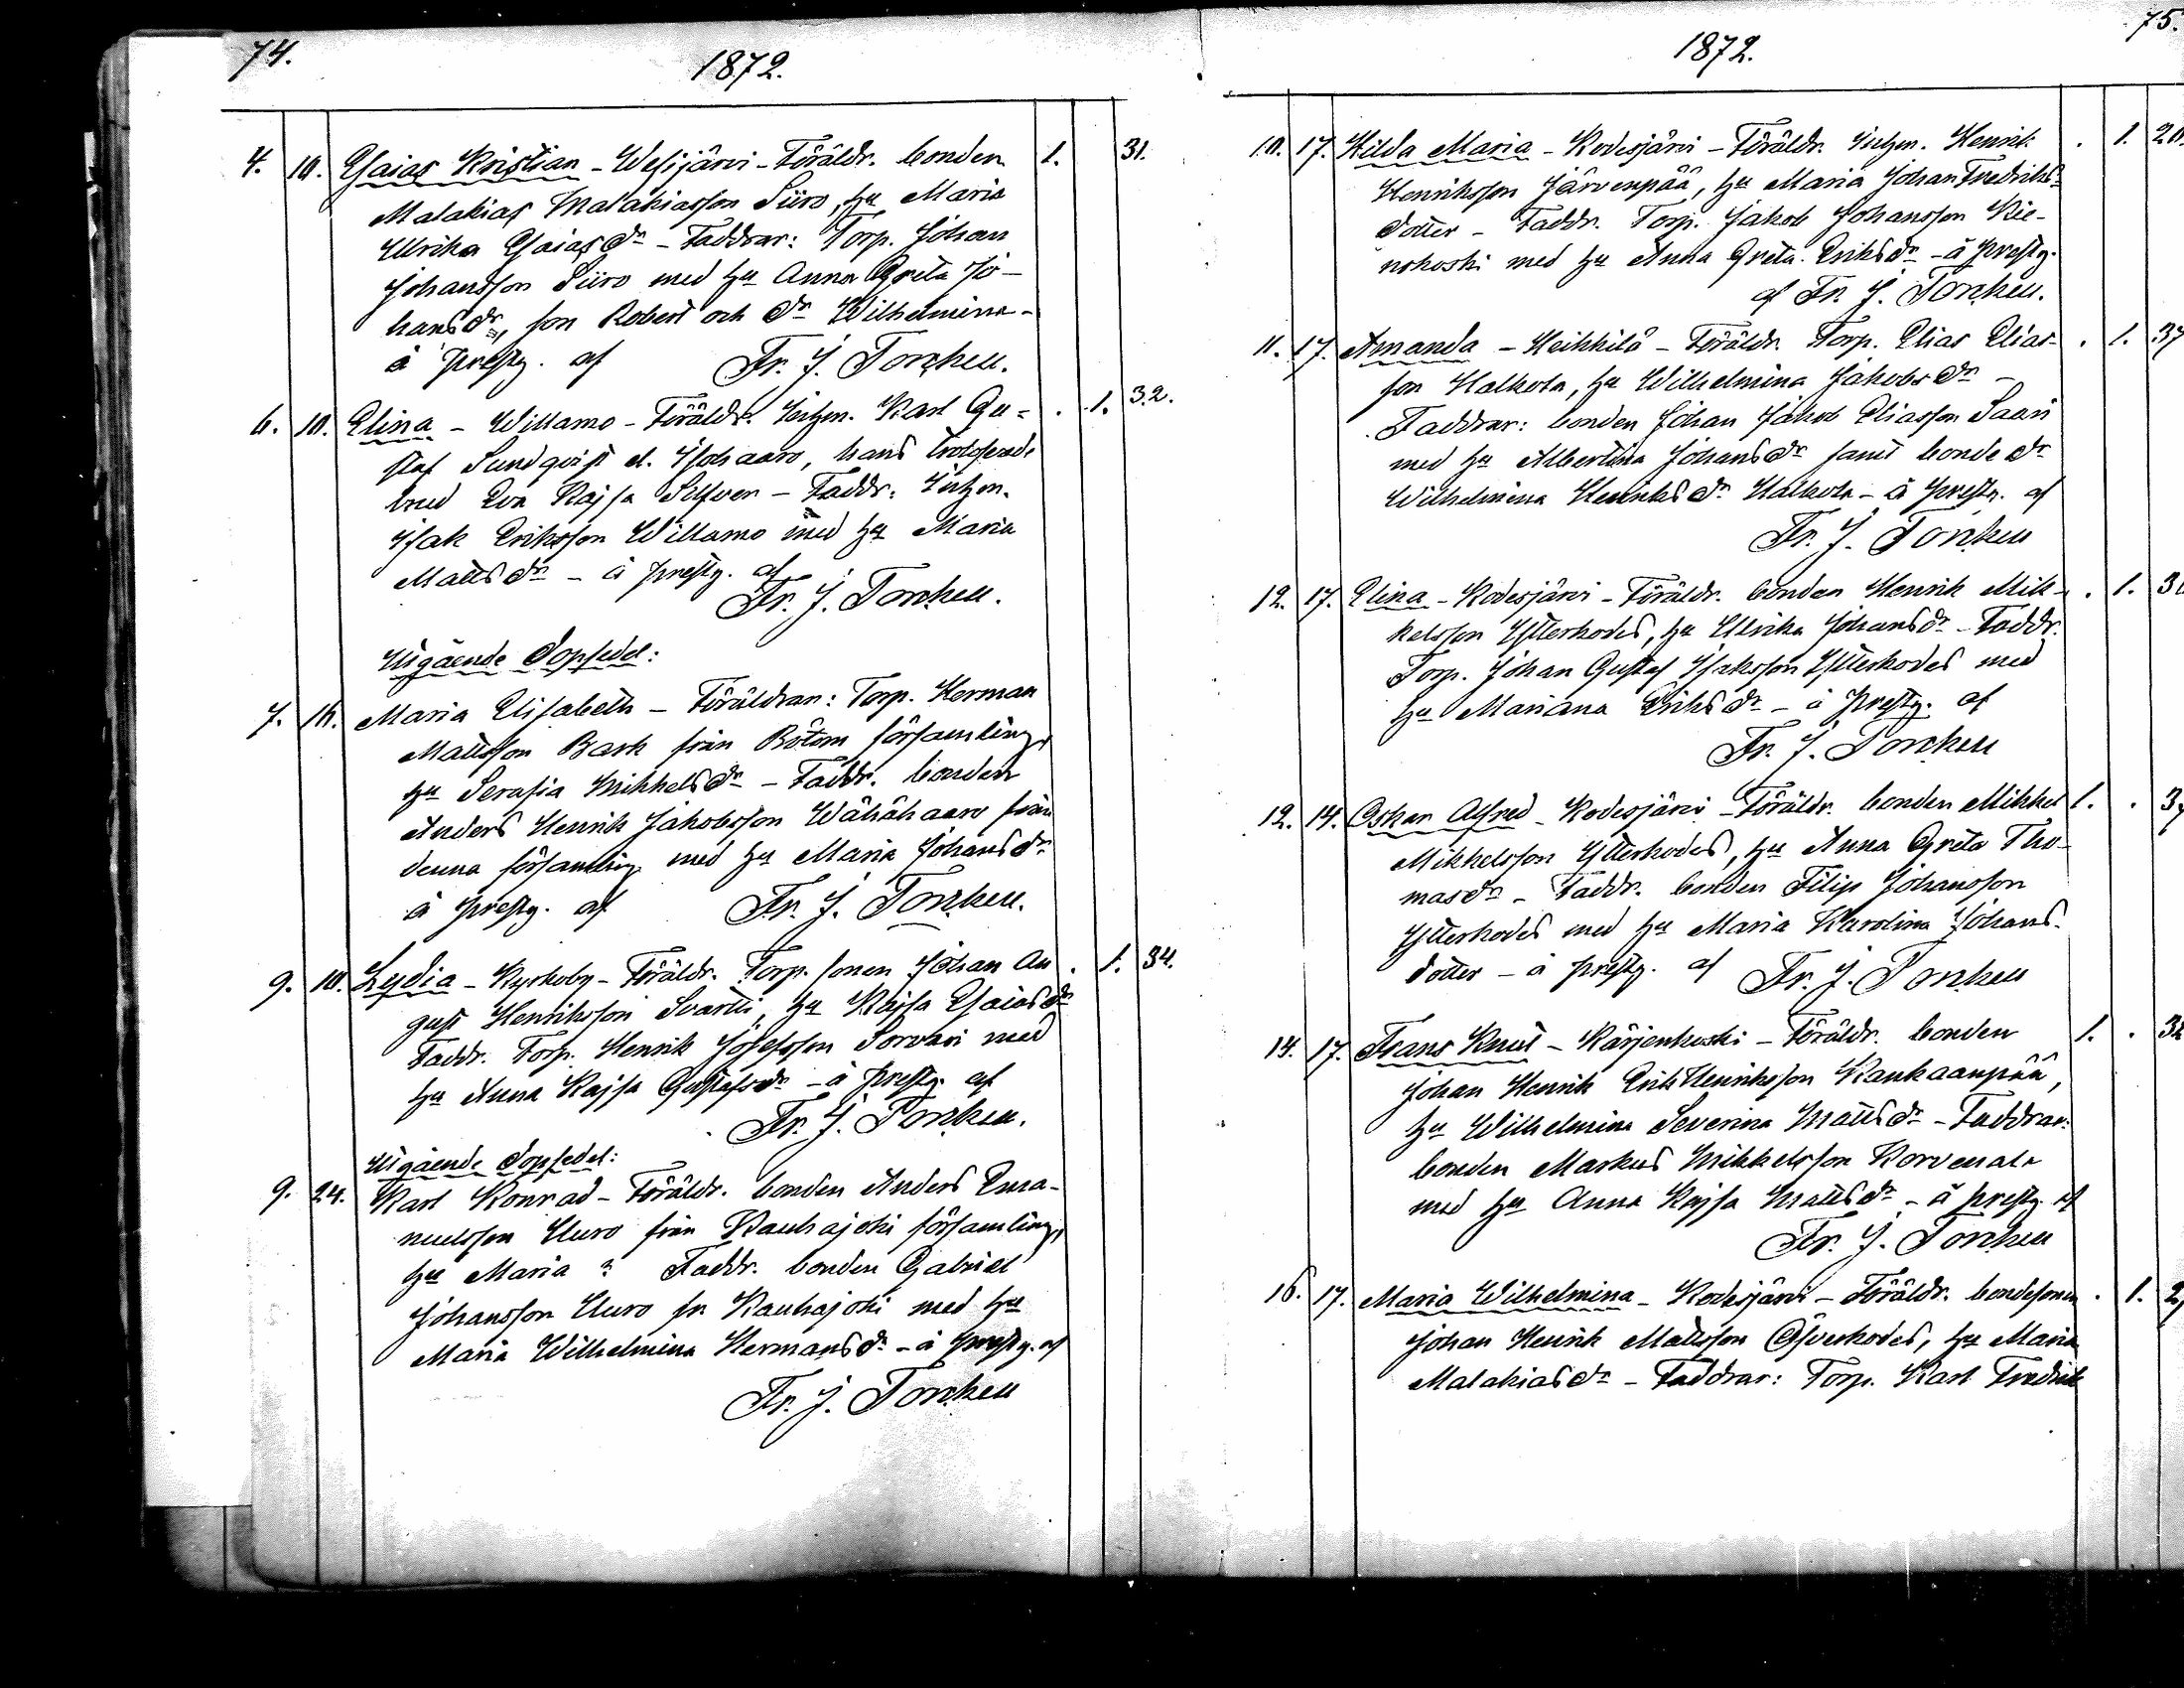 74.
1872.
4. 10. Esaias Kristian - Wesijärvi - Föräldr. bonden 1. 31.
Malakias Malakiasson Siiro, hu Maria
Ulrika Esaiasdr - Faddrar: Torp. Johan
Johansson Siiro med hu Anna Greta Jo-
hansdr, son Robert och dr Wilhelmina -
å prestg. af Fr. J. Torckell.
6. 10. Elina - Willamo - Föräldr. Inhm. Karl Gu= . 1. 32.
staf Sundqvist el. Isohaaro, hans trolofvade
brud Eva Kajsa Silfver - Faddr. Inhm.
Isak Eriksson Willamo med hu Maria
Mattsdr - å prestg. af
Fr. J. Torckell.
Utgående dopsedel:
7. 16. Maria Elisabeth - Föräldrar: Torp. Herman
Mattsson Bark från Bötom församling,
hu Serafia Mikkelsdr - Faddr. bonden
Anders Henrik Jakobsson Wähähaaro från
denna församling med hu Maria Johansdr
å prestg. af Fr. J. Torckell.
9. 10. Lydia - Kyrkoby - Föräldr. Torp. sonen Johan Au . 1. 34.
gust Henriksson Svartti, hu Kajsa Esaiasdr
Faddr. Torp. Henrik Josefsson Sorvari med
hu Anna Kajsa Gustafsdr - å prestg. af
Fr. J. Torckell.
Utgående dopsedel:
9. 24. Karl Konrad - Föräldr. bonden Anders Ema-
nuelsson Uuro från Kauhajoki församling,
hu Maria ? Faddr. bonden Gabriel
Johansson Uuro fr. Kauhajoki med hu
Maria Wilhelmina Hermansdr - å prestg. af
Fr. J. Torckell
75.
1872.
10. 17. Hilda Maria - Kodesjärvi - Föräldr. Inhm. Henrik . 1.
Henriksson Järvenpää, hu Maria Johan Fredriks-
dotter - Faddr. Torp. Jakob Johansson Kie-
nokoski med hu Anna Greta Eriksdr - å prestg.
af Fr. J. Torckell.
11. 17. Amanda - Heikkilä - Föräldr. Torp. Elias Elias- . 1. 37
son Halkola, hu Wilhelmina Jakobsdr -
Faddrar: bonden Johan Jakob Eliasson Saari
med hu Albertina Johansdr samt bondedr
Wilhelmina Henriksdr Halkola - å prestg. af
Fr. J. Torckell
12. 17. Elina - Kodesjärvi - Föräldr. bonden Henrik Mik- . 1.
kelsson Ytterkodes, hu Ulrika Johansdr - Faddr.
Torp. Johan Gustaf Isaksson Ytterkodes med
hu Mariana Eriksdr - å prestg. af
Fr. J. Torckell
12. 14. Oskar Alfred - Kodesjärvi - Föräldr. bonden Mikkel 1. .
Mikkelsson Ytterkodes, hu Anna Greta Tho-
masdr - Faddr. bonden Filip Johansson
Ytterkodes med hu Maria Karolina Johans-
dotter - å prestg. af Fr. J. Torckell
14. 17. Frans Knut - Kärjenkoski - Föräldr. bonden 1. .
Johan Henrik Erik Henriksson Kankaanpää,
hu Wilhelmina Severina Mattsdr - Faddrar:
bonden Markus Mikkelsson Korvenala
med hu Anna Kajsa Mattsdr - å prestg. af
Fr. J. Torckell
16. 17. Maria Wilhelmina - Kodesjärvi - Föräldr. bondesonen . 1.
Johan Henrik Mattsson Öfverkodes, hu Maria
Malakiasdr - Faddrar: Torp. Karl Fredrik